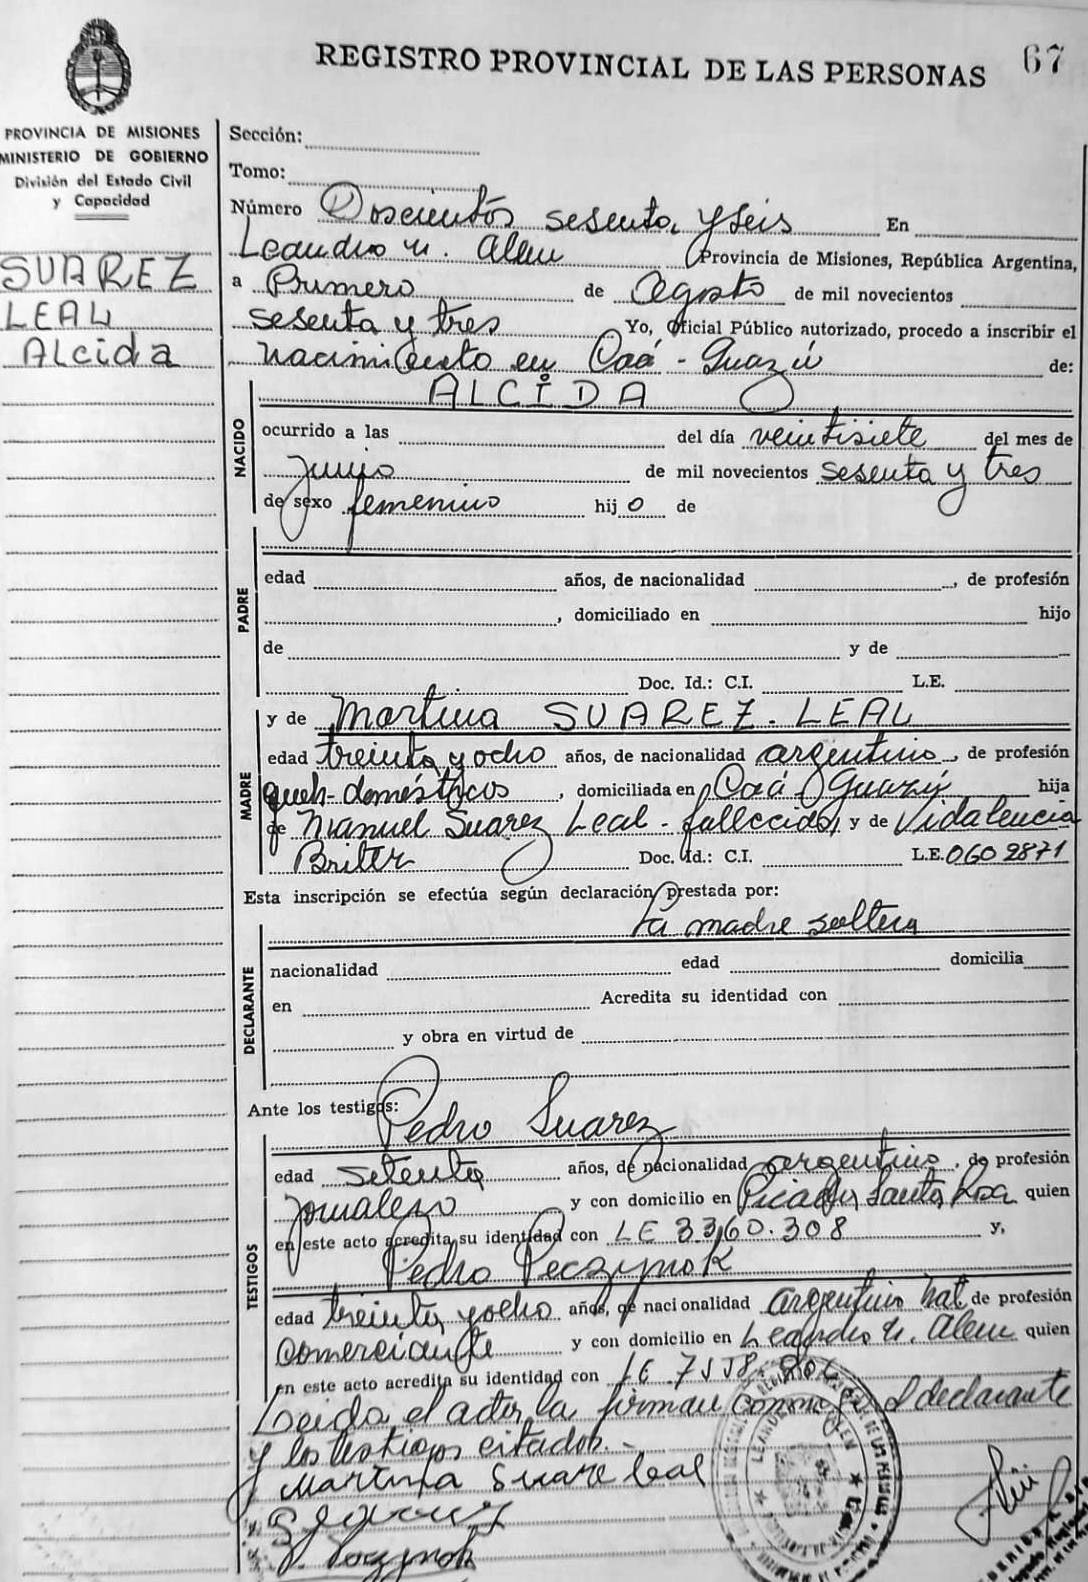 REGISTRO PROVINCIAL DE LAS PERSONAS
67
PROVINCIA DE MISIONES
MINISTERIO DE GOBIERNO
División del Estado Civil
y Capacidad
SUAREZ
LEAL
Alcida
Sección:
Tomo:
Número Doscientos sesenta y seis En
Leandro N. Alem Provincia de Misiones, República Argentina,
a Primero de Agosto de mil novecientos
sesenta y tres Yo, Oficial Público autorizado, procedo a inscribir el
nacimiento en Caá-Guazú de:
ALCIDA
NACIDO
ocurrido a las del día veintisiete del mes de
junio de mil novecientos sesenta y tres
de sexo femenino hijo de
PADRE
edad años, de nacionalidad , de profesión
, domiciliado en hijo
de y de
Doc. Id.: C.I. L.E.
y de Martina SUAREZ-LEAL
MADRE
edad treinta y ocho años, de nacionalidad argentino, de profesión
queh-domésticos, domiciliada en Caá Guazú hija
de Manuel Suarez Leal - fallecido, y de Vidalencia
Briter Doc. Id.: C.I. L.E. 0602871
Esta inscripción se efectúa según declaración prestada por:
la madre soltera
DECLARANTE
nacionalidad edad domicilia
en Acredita su identidad con
y obra en virtud de
Ante los testigos:
Pedro Suarez
TESTIGOS
edad setenta años, de nacionalidad argentino, de profesión
jornalero y con domicilio en Picada Santa Rosa quien
en este acto acredita su identidad con LE 3360.308 y,
Pedro Peczynok
edad treinta y ocho años, de nacionalidad argentino nat de profesión
comerciante y con domicilio en Leandro N. Alem quien
en este acto acredita su identidad con LE
Leida el acta, la firman conmigo declarante
y los testigos citados.-
Martina Suare leal